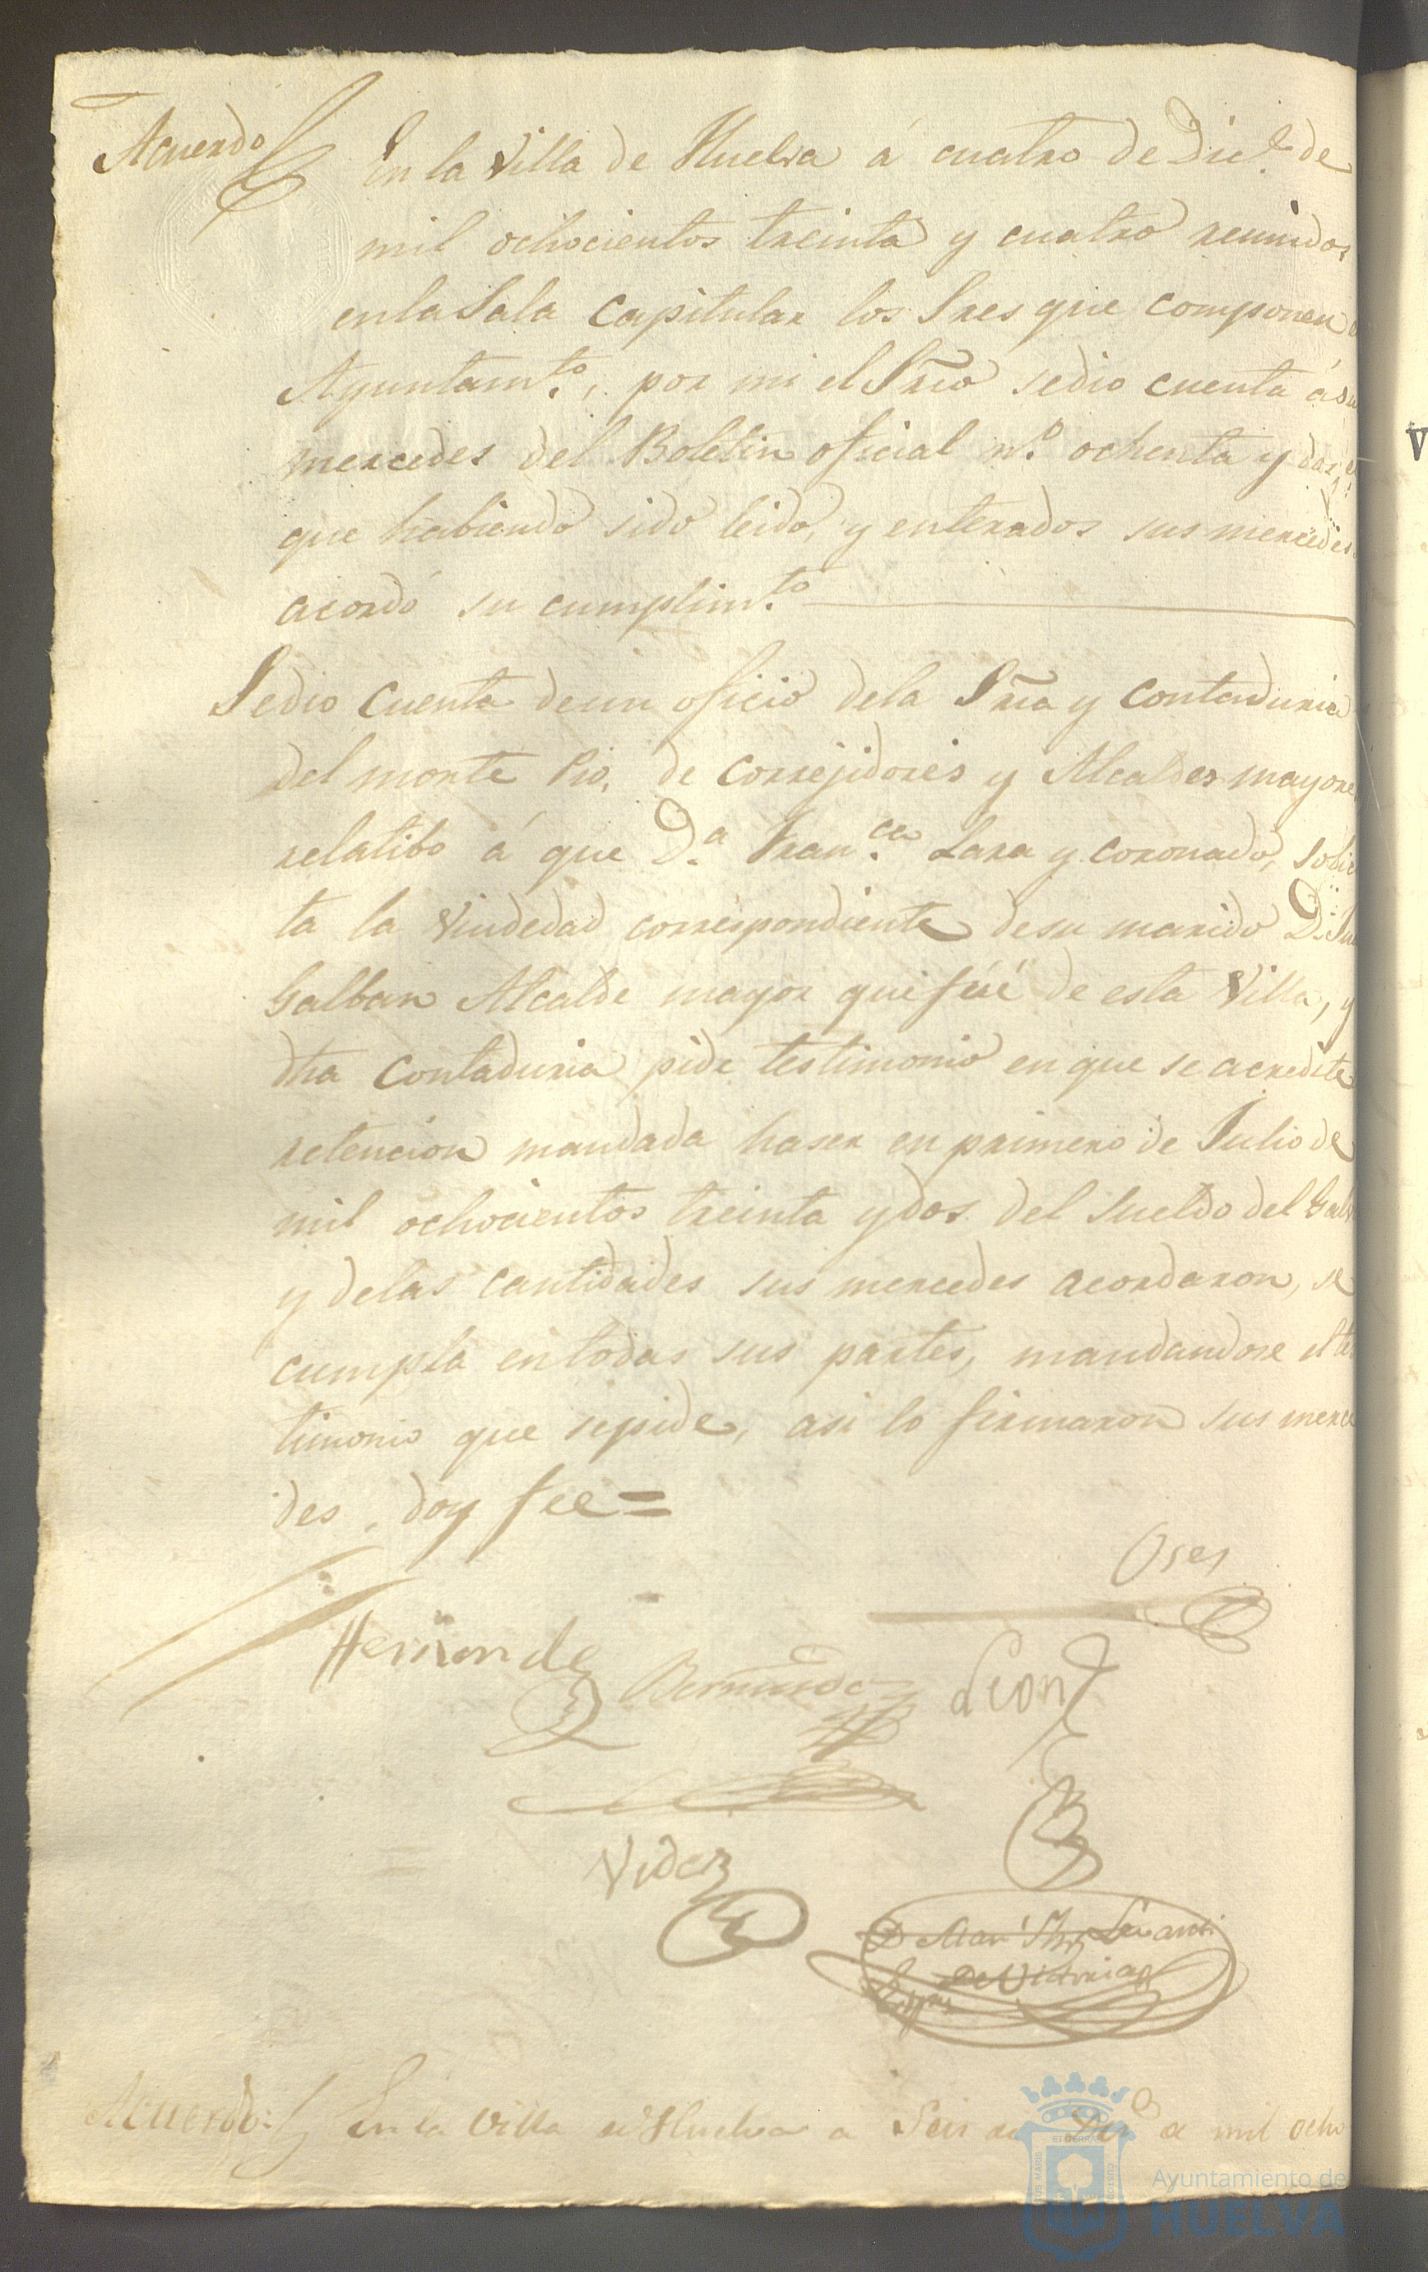 Acuerdo En la Villa de Huelva á cuatro de Dic.e de
mil ochocientos treinta y cuatro reunidos
en la Sala Capitular los Sres que componen
Ayuntam.to, por mi el Srio se dio cuenta á su
mercedes del Boletin oficial n.o ochenta y dos, el
que habiendo sido leido, y enterados sus mercedes
acordó su cumplim.to
Se dio cuenta de un oficio de la Sria y Contaduria
del monte Pio, de Correjidores y Alcaldes mayore
relatibo á que D.a Fran.ca Lara y Coronado, solici
ta la Viudedad correspondiente de su marido D.n
Galban Alcalde mayor que fué de esta Villa, y
dha Contaduria pide testimonio en que se acredite
retencion mandada haser en primero de Julio de
mil ochocientos treinta y dos del Sueldo del Galb
y de las cantidades sus mercedes acordaron, se
cumpla en todas sus partes, mandandose el tes
timonio que se pide, asi lo firmaron sus merce
des, doy fee =
Oses
Hernandez Bermudez Leon
Videz
D Man.l
de Victoria
Acuerdo: En la Villa de Huelva a Seis de a mil ocho
Ayuntamiento de
HUELVA
V